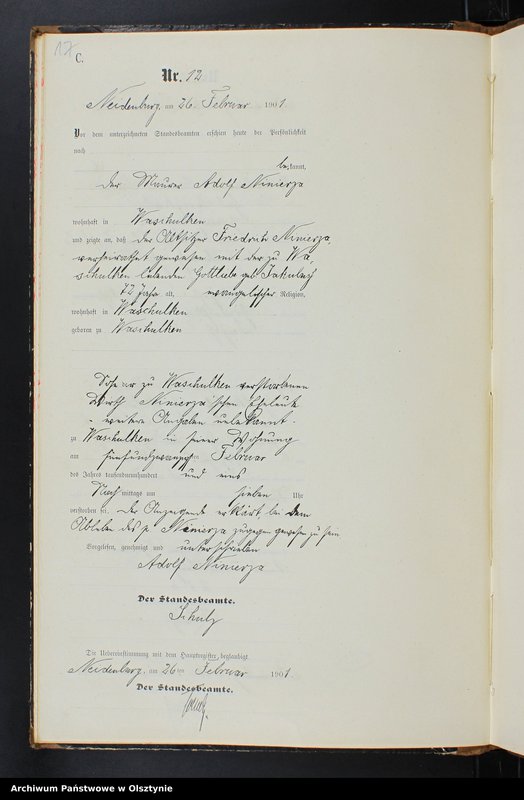 17
C.
Nr. 12
Neidenburg, am 26. Februar 1901
Vor dem unterzeichneten Standesbeamten erschien heute der Persönlichkeit
nach
bekannt,
der Maurer Adolf Nimierza
wohnhaft in Waschulken
und zeigte an, daß der Altsitzer Friedrich Nimierza,
verheirathet gewesen mit der zu Wa,
schulken lebenden Gottliebe geb. Jakubzig
72 Jahre alt, evangelischer Religion,
wohnhaft in Waschulken
geboren zu Waschulken
Sohn der zu Waschulken verstorbenen
Nimierza'schen Eheleute
- weitere Angaben unbekannt -
zu Waschulken in seiner Wohnung
am fünfundzwanzigsten Februar
des Jahres tausendneunhundert und eins
Nachmittags um sieben Uhr
verstorben sei. Der Anzeigende erklärt bei dem
Ableben des p. Nimierza zugegen gewesen zu sein
Vorgelesen, genehmigt und unterschrieben
Adolf Nimierza
Der Standesbeamte.
Schulz
Die Uebereinstimmung mit dem Hauptregister beglaubigt.
Neidenburg, am 26ten Februar 1901.
Der Standesbeamte.
Schulz
Archiwum Państwowe w Olsztynie